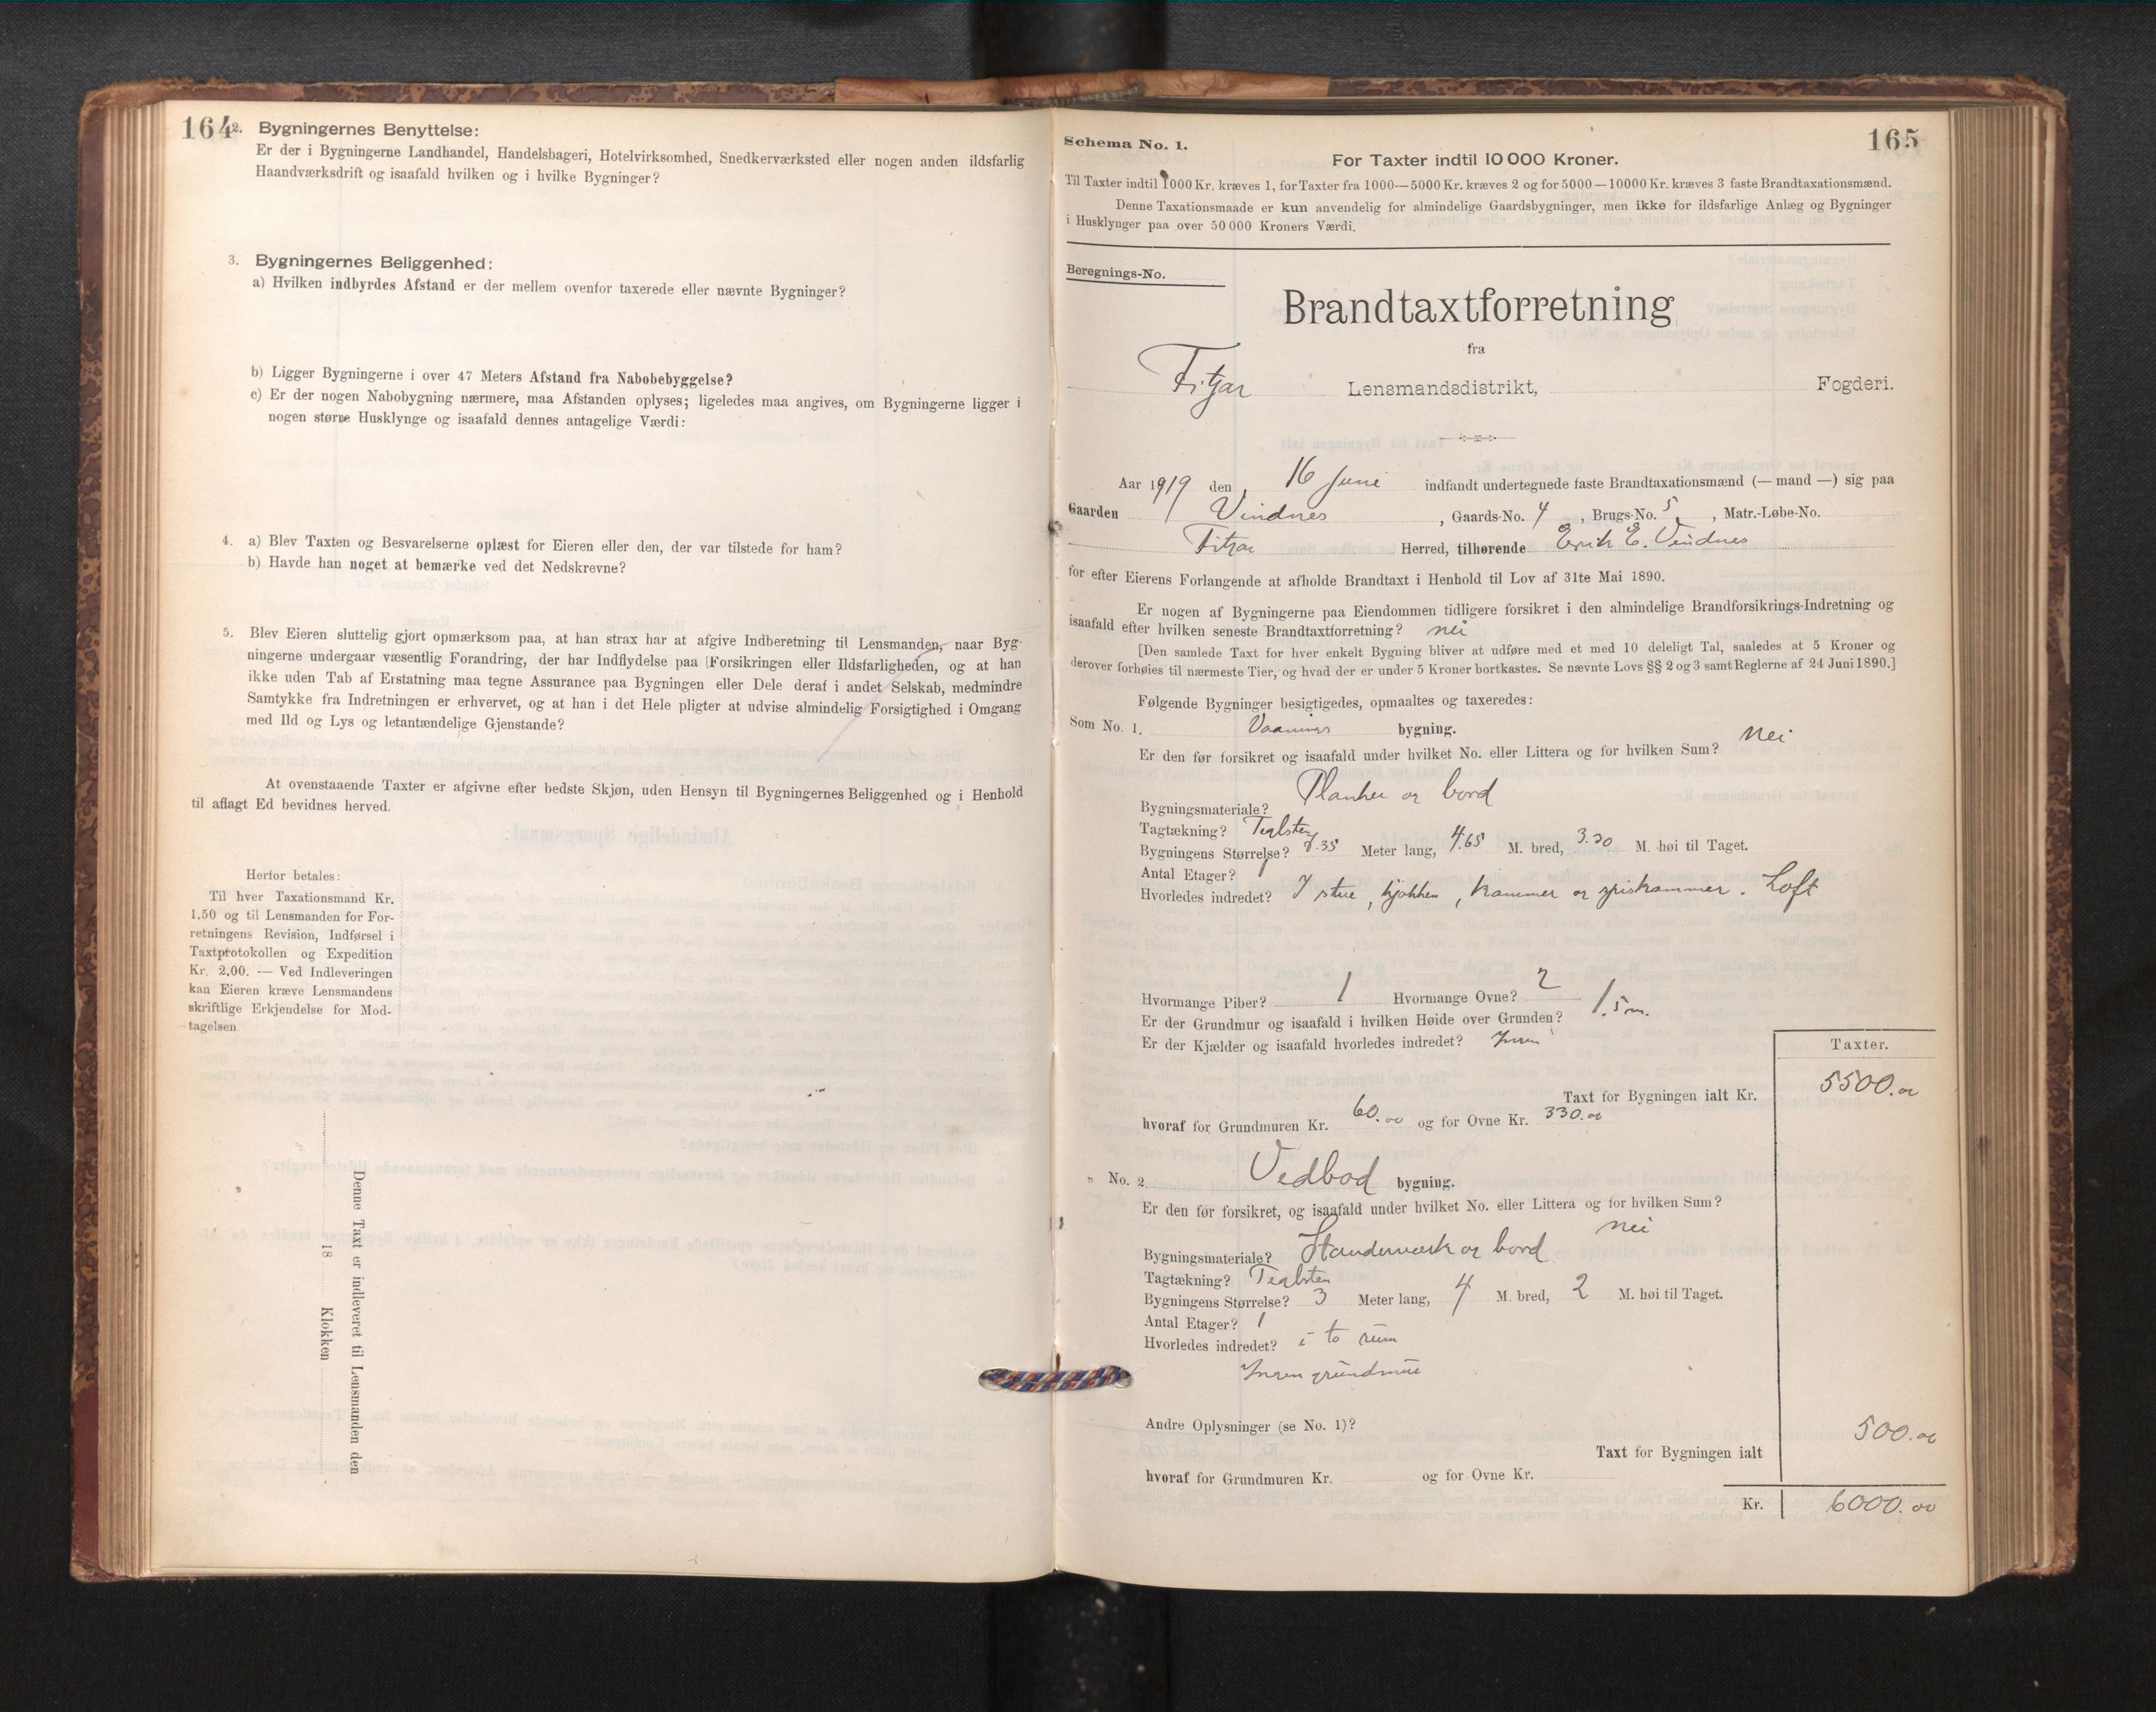 164
2. Bygningernes Benyttelse:
Er der i Bygningerne Landhandel, Handelsbageri, Hotelvirksomhed, Snedkerværksted eller nogen anden ildsfarlig
Haandværksdrift og isaafald hvilken og i hvilke Bygninger?
3. Bygningernes Beliggenhed:
a) Hvilken indbyrdes Afstand er der mellem ovenfor taxerede eller nævnte Bygninger?
b) Ligger Bygningerne i over 47 Meters Afstand fra Nabobebyggelse?
c) Er der nogen Nabobygning nærmere, maa Afstanden oplyses; ligeledes maa angives, om Bygningerne ligger i
nogen større Husklynge og isaafald dennes antagelige Værdi:
4. a) Blev Taxten og Besvarelserne oplæst for Eieren eller den, der var tilstede for ham?
b) Havde han noget at bemærke ved det Nedskrevne?
5. Blev Eieren sluttelig gjort opmærksom paa, at han strax har at afgive Indberetning til Lensmanden, naar Byg-
ningerne undergaar væsentlig Forandring, der har Indflydelse paa Forsikringen eller Ildsfarligheden, og at han
ikke uden Tab af Erstatning maa tegne Assurance paa Bygningen eller Dele deraf i andet Selskab, medmindre
Samtykke fra Indretningen er erhvervet, og at han i det Hele pligter at udvise almindelig Forsigtighed i Omgang
med Ild og Lys og letantændelige Gjenstande?
At ovenstaaende Taxter er afgivne efter bedste Skjøn, uden Hensyn til Bygningernes Beliggenhed og i Henhold
til aflagt Ed bevidnes herved.
Herfor betales:
Til hver Taxationsmand Kr.
1.50 og til Lensmanden for For-
retningens Revision, Indførsel i
Taxtprotokollen og Expedition
Kr. 2.00. — Ved Indleveringen
kan Eieren kræve Lensmandens
skriftlige Erkjendelse for Mod-
tagelsen.
Denne Taxt er indleveret til Lensmanden den
18 Klokken
165
Schema No. 1.
For Taxter indtil 10 000 Kroner.
Til Taxter indtil 1000 Kr. kræves 1, for Taxter fra 1000—5000 Kr. kræves 2 og for 5000—10000 Kr. kræves 3 faste Brandtaxationsmænd.
Denne Taxationsmaade er kun anvendelig for almindelige Gaardsbygninger, men ikke for ildsfarlige Anlæg og Bygninger
i Husklynger paa over 50 000 Kroners Værdi.
Beregnings-No.
Brandtaxtforretning
fra
Fitjar Lensmandsdistrikt, Fogderi.
Aar 1919 den 16 Juni indfandt undertegnede faste Brandtaxationsmænd (— mand —) sig paa
Gaarden Vindnes, Gaards-No. 4, Brugs-No. 5, Matr.-Løbe-No.
Fitjar Herred, tilhørende Erik E. Vindnes
for efter Eierens Forlangende at afholde Brandtaxt i Henhold til Lov af 31te Mai 1890.
Er nogen af Bygningerne paa Eiendommen tidligere forsikret i den almindelige Brandforsikrings-Indretning og
isaafald efter hvilken seneste Brandtaxtforretning? nei
[Den samlede Taxt for hver enkelt Bygning bliver at udføre med et med 10 deleligt Tal, saaledes at 5 Kroner og
derover forhøies til nærmeste Tier, og hvad der er under 5 Kroner bortkastes. Se nævnte Lovs §§ 2 og 3 samt Reglerne af 24 Juni 1890.]
Følgende Bygninger besigtigedes, opmaaltes og taxeredes:
Som No. 1. Vaanings bygning.
Er den før forsikret og isaafald under hvilket No. eller Littera og for hvilken Sum? nei
Bygningsmateriale? Planker og bord
Tagtækning? Teglsten
Bygningens Størrelse? 7.35 Meter lang, 4.65 M. bred, 3.30 M. høi til Taget.
Antal Etager? 1
Hvorledes indredet? I stue, kjøkken, kammer og spiskammer. Loft
Hvormange Piber? 1 Hvormange Ovne? 2
Er der Grundmur og isaafald i hvilken Høide over Grunden? 1.5 m.
Er der Kjælder og isaafald hvorledes indredet? Ingen
Taxter.
Taxt for Bygningen ialt Kr. 5500.00
hvoraf for Grundmuren Kr. 60.00 og for Ovne Kr. 330.00
" No. 2. Vedbod bygning.
Er den før forsikret, og isaafald under hvilket No. eller Littera og for hvilken Sum?
nei
Bygningsmateriale? Standerværk og bord
Tagtækning? Teglsten
Bygningens Størrelse? 3 Meter lang, 4 M. bred, 2 M. høi til Taget.
Antal Etager? 1
Hvorledes indredet? i to rum
Ingen grundmur
Andre Oplysninger (se No. 1)?
Taxt for Bygningen ialt 500.00
hvoraf for Grundmuren Kr. og for Ovne Kr.
Kr. 6000.00